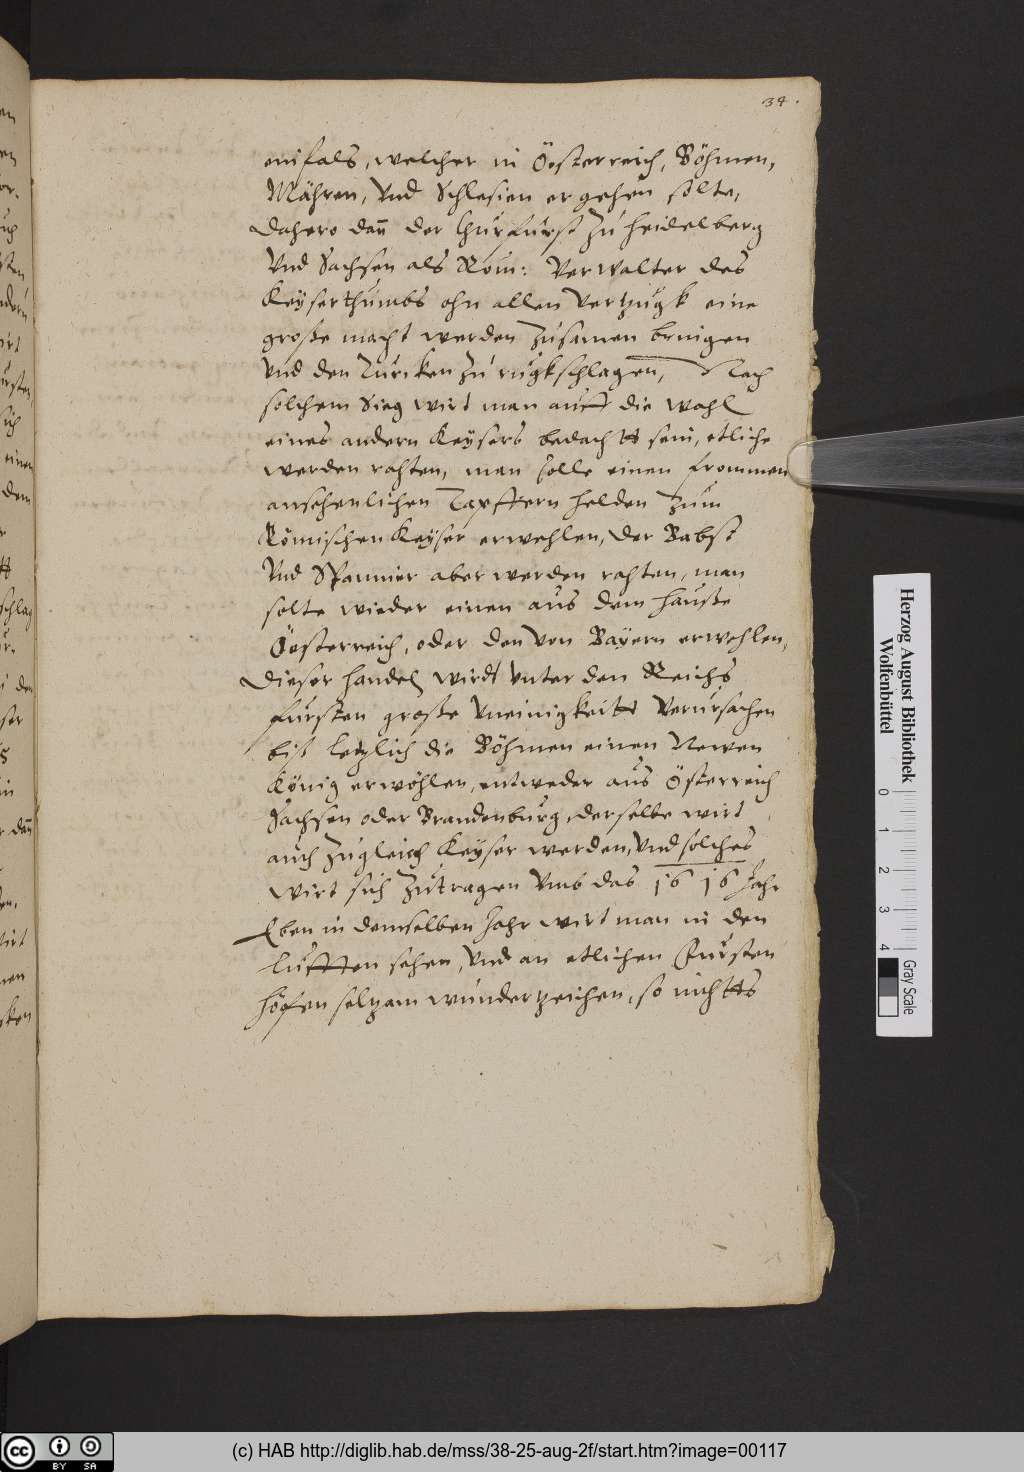 34.
einfals, welcher in Öesterreich, Böhmen,
Mähren, Vnd Schlesien ergehen solte,
dahero dan̄ der Churfurst zu Heidelberg
Vnd Sachsen als Röm: Verwalter des
Keyserthumbs ohn allen Vertzugk eine
große macht werden zusamen bringen
Vnd den Turcken zu rugkschlagen, Nach
solchem Sieg wirt man auff die wahl
eines andern Keysers bedachtt sein, etliche
werden rahten, man solle einen frommen
ansehenlichen Tapffern helden zum
Römischen Keyser erwehlen, der Babst
Vnd Spannier aber werden rahten, man
solte wieder einen aus dem hauße
Öesterreich, oder den von Bayern erwehlen,
dieser handel wirdt Vnter den Reichs
fursten große Vneinigkeitt Verursachen
biß letzlich die Böhmen einen Newen
König erwöhlen, entweder aus Österreich
Sachsen oder Brandenburg, derselbe wirt
auch zugleich Keyser werden, Vnd solches
wirt sich zutragen Vmb das 1616 Jahr
Eben in demselben Jahr wirt man in den
lufften sehen, Vnd an etlichen Fursten
höfen seltzam wundertzeichen, so nichtts
Herzog August Bibliothek
Wolfenbüttel
0 1 2 3 4
Gray Scale
cc BY SA
(c) HAB http://diglib.hab.de/mss/38-25-aug-2f/start.htm?image=00117